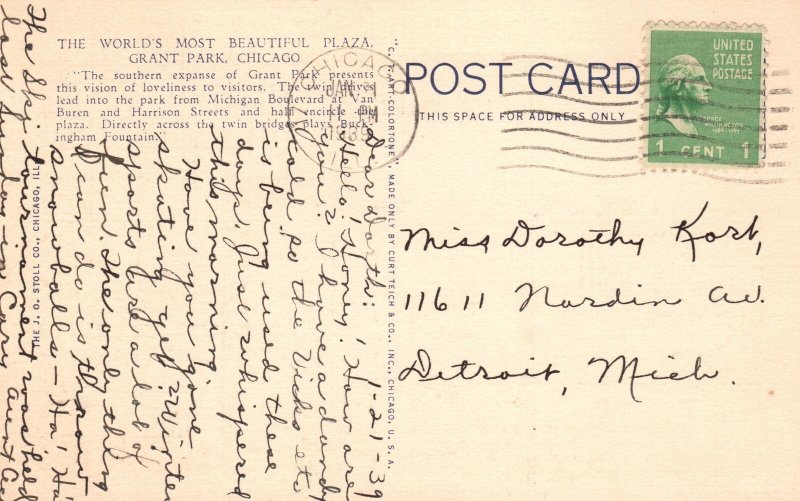 THE WORLD'S MOST BEAUTIFUL PLAZA,
GRANT PARK, CHICAGO
"The southern expanse of Grant Park presents
this vision of loveliness to visitors. The twin drives
lead into the park from Michigan Boulevard at Van
Buren and Harrison Streets and half encircle the
plaza. Directly across the twin bridges plays Buck-
ingham Fountain."
THE J. O. STOLL CO., CHICAGO, ILL.
"C. T. ART-COLORTONE" MADE ONLY BY CURT TEICH & CO., INC., CHICAGO, U. S. A.
1-21-39
Dear Dorth:
Hello! Honey! How are
you? I have a dandy
cold so the Vicks etc
is being used these
days. Just whispered
this morning.
Have you gone
skating yet? Winter
sports are a lot of
fun. The only thing
I can do is throw
snowballs - Ha! Ha!
The Ski tournament was held
last Sunday in Cary. Aunt
CHICAGO
JAN
PM
POST CARD
THIS SPACE FOR ADDRESS ONLY
UNITED
STATES
POSTAGE
GEORGE
WASHINGTON
1789-1797
1 CENT 1
Miss Dorothy Kort,
11611 Nardin Av.
Detroit, Mich.